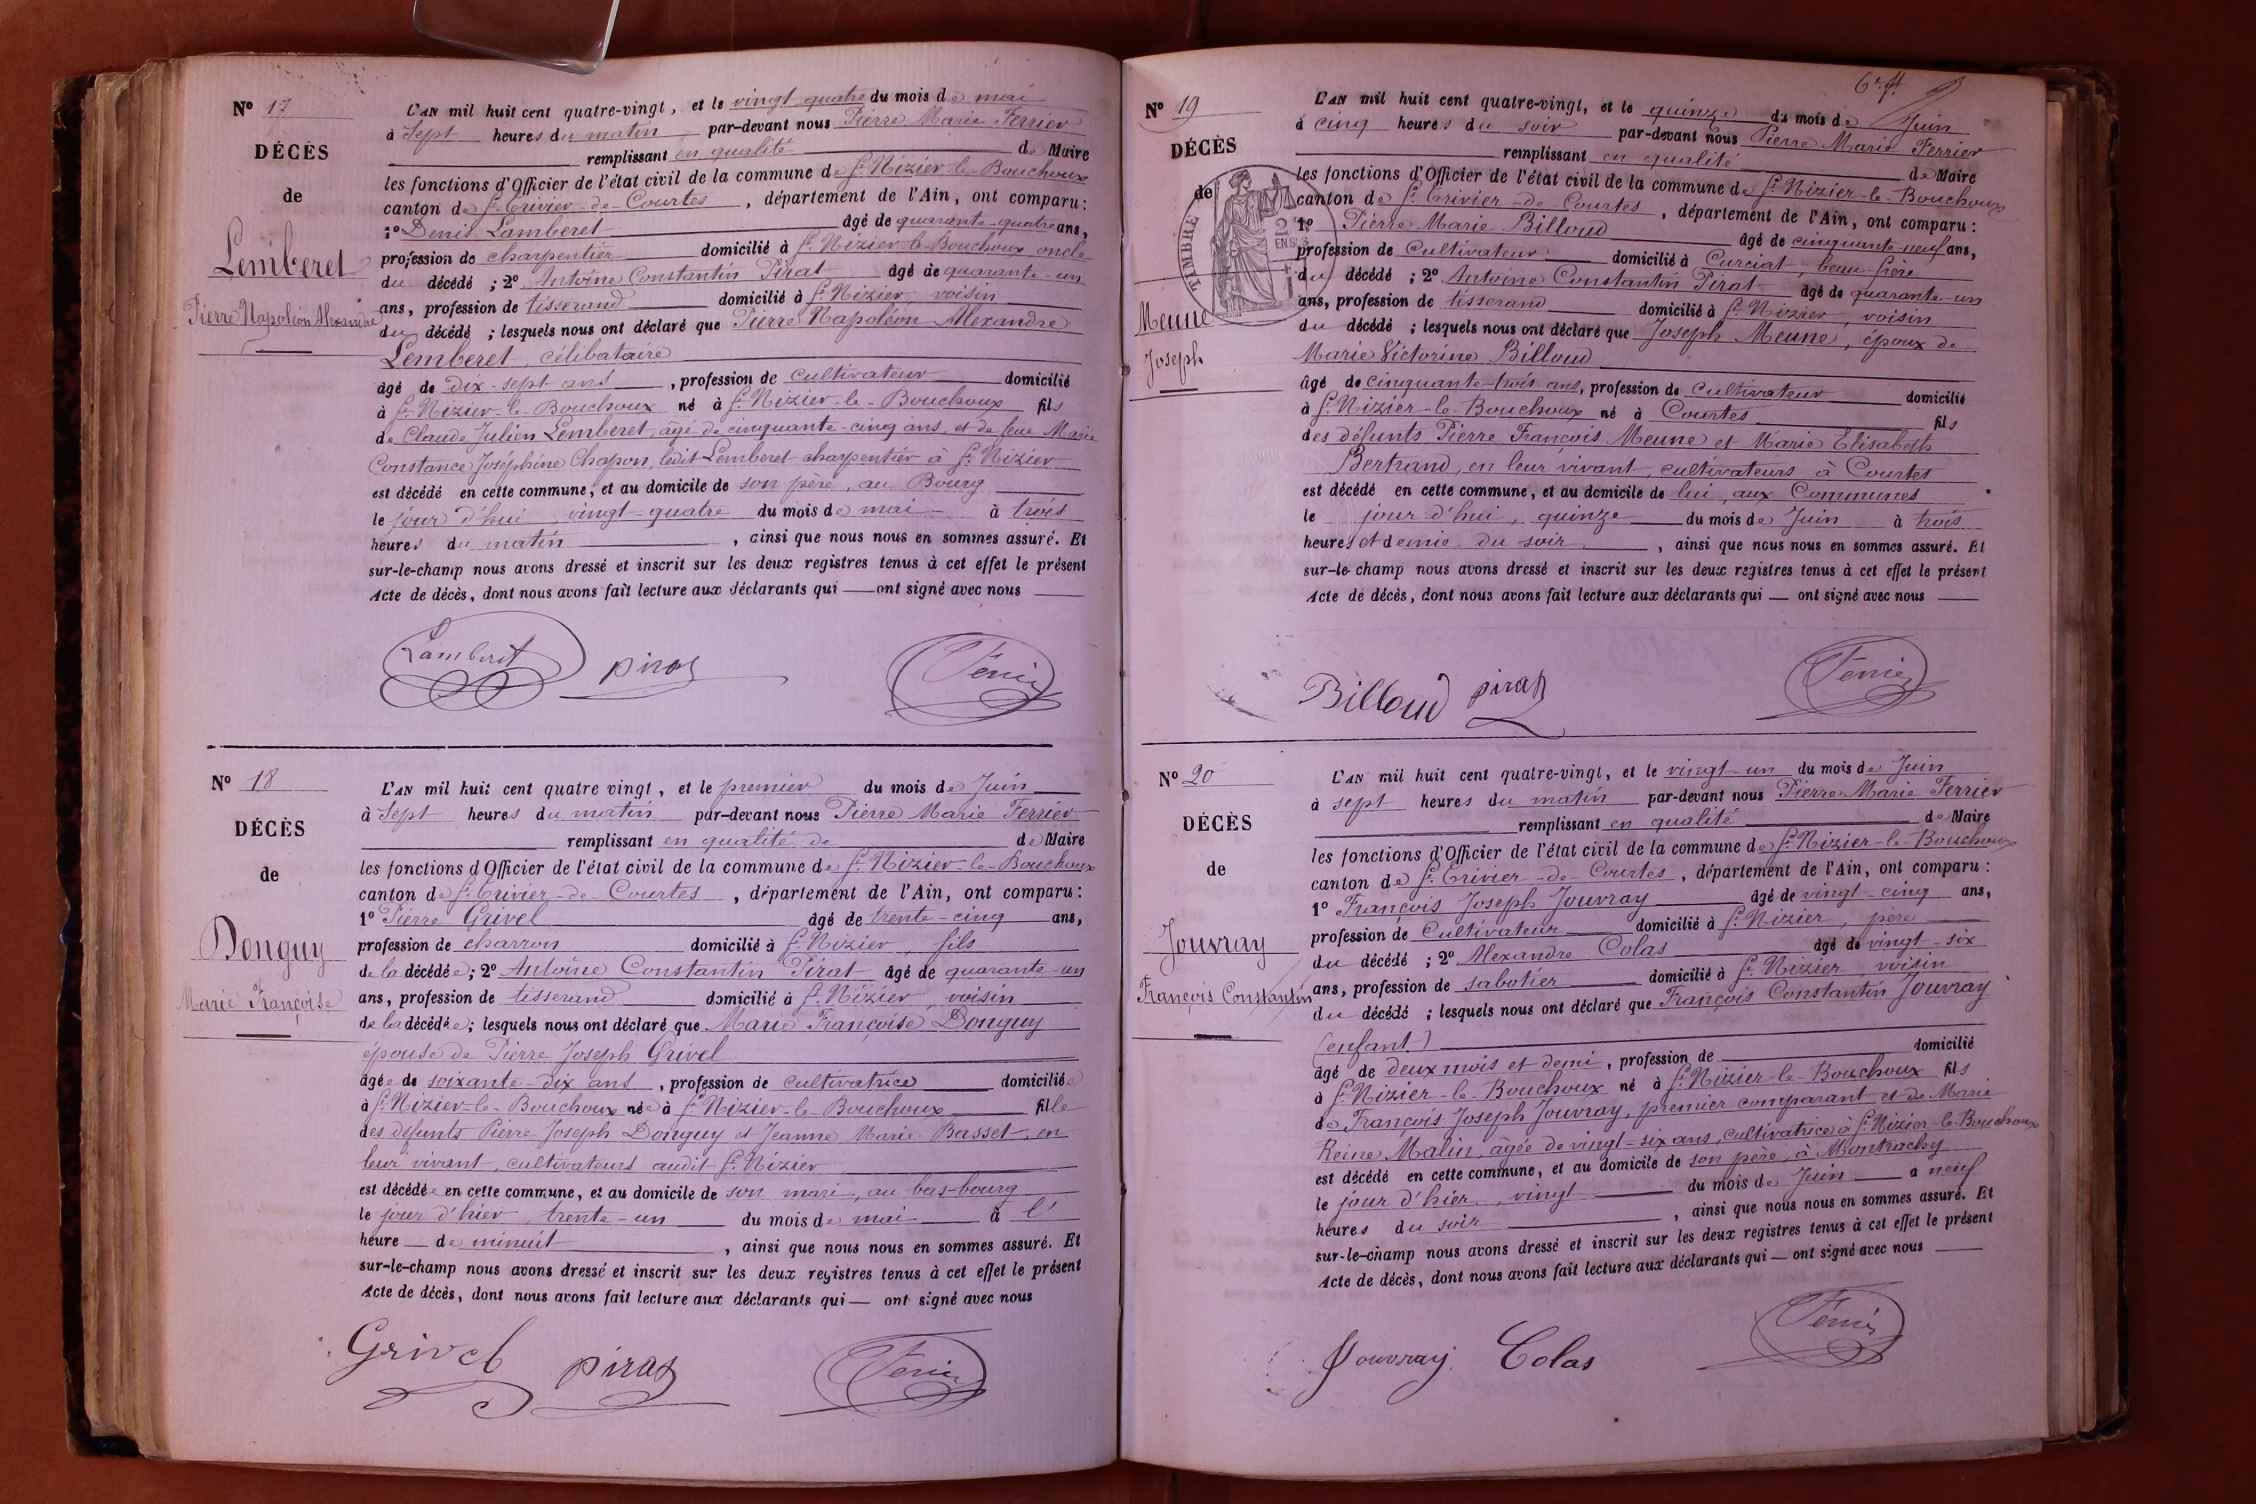 Nº 17
DÉCÈS
de
Lemberet
Pierre Napoléon Alexandre
L'AN mil huit cent quatre-vingt, et le vingt quatre du mois de mai
à Sept heures du matin par-devant nous Pierre Marie Ferrier
remplissant en qualité de Maire
les fonctions d'Officier de l'état civil de la commune de St Nizier-le-Bouchoux
canton de St Trivier-de-Courtes, département de l'Ain, ont comparu:
1º Denis Lamberet âgé de quarante-quatre ans,
profession de charpentier domicilié à St Nizier-le-Bouchoux oncle
du décédé ; 2º Antoine Constantin Pirat âgé de quarante-un
ans, profession de tisserand domicilié à St Nizier, voisin
du décédé ; lesquels nous ont déclaré que Pierre Napoléon Alexandre
Lemberet, célibataire
âgé de dix-sept ans, profession de cultivateur domicilié
à St Nizier-le-Bouchoux né à St Nizier-le-Bouchoux fils
de Claude Julien Lemberet, âgé de cinquante-cinq ans, et de feue Marie
Constance Joséphine Chapon, ledit Lemberet charpentier à St Nizier
est décédé en cette commune, et au domicile de son père, au Bourg
le jour d'hui, vingt-quatre du mois de mai à trois
heures du matin, ainsi que nous nous en sommes assuré. Et
sur-le-champ nous avons dressé et inscrit sur les deux registres tenus à cet effet le présent
Acte de décès, dont nous avons fait lecture aux déclarants qui — ont signé avec nous
Lamberet Pirat Ferrier
Nº 18
DÉCÈS
de
Donguy
Marie Françoise
L'AN mil huit cent quatre vingt, et le premier du mois de Juin
à Sept heures du matin par-devant nous Pierre Marie Ferrier
remplissant en qualité de de Maire
les fonctions d'Officier de l'état civil de la commune de St Nizier-le-Bouchoux
canton de St Trivier-de-Courtes, département de l'Ain, ont comparu:
1º Pierre Grivel âgé de trente-cinq ans,
profession de charron domicilié à St Nizier, fils
de la décédée; 2º Antoine Constantin Pirat âgé de quarante-un
ans, profession de tisserand domicilié à St Nizier, voisin
de la décédée; lesquels nous ont déclaré que Marie Françoise Donguy
épouse de Pierre Joseph Grivel
âgée de soixante-dix ans, profession de cultivatrice domiciliée
à St Nizier-le-Bouchoux née à St Nizier-le-Bouchoux fille
des défunts Pierre Joseph Donguy et Jeanne Marie Basset, en
leur vivant, cultivateurs audit St Nizier
est décédée en cette commune, et au domicile de son mari, au bas-bourg
le jour d'hier, trente-un du mois de mai à l'
heure de minuit, ainsi que nous nous en sommes assuré. Et
sur-le-champ nous avons dressé et inscrit sur les deux registres tenus à cet effet le présent
Acte de décès, dont nous avons fait lecture aux déclarants qui — ont signé avec nous
Grivel Pirat Ferrier
Nº 19
DÉCÈS
de
TIMBRE
Meune
Joseph
L'AN mil huit cent quatre-vingt, et le quinze du mois de Juin
à cinq heures du soir par-devant nous Pierre Marie Ferrier
remplissant en qualité de Maire
les fonctions d'Officier de l'état civil de la commune de St Nizier-le-Bouchoux
canton de St Trivier-de-Courtes, département de l'Ain, ont comparu:
1º Pierre Marie Billoud âgé de cinquante-neuf ans,
profession de Cultivateur domicilié à Curciat, beau-frère
du décédé ; 2º Antoine Constantin Pirat âgé de quarante-un
ans, profession de tisserand domicilié à St Nizier, voisin
du décédé ; lesquels nous ont déclaré que Joseph Meune, époux de
Marie Victorine Billoud
âgé de cinquante-trois ans, profession de Cultivateur domicilié
à St Nizier-le-Bouchoux né à Courtes fils
des défunts Pierre François Meune et Marie Elisabeth
Bertrand, en leur vivant, cultivateurs à Courtes
est décédé en cette commune, et au domicile de lui, aux Communes
le jour d'hui, quinze du mois de Juin à trois
heures et demie du soir, ainsi que nous nous en sommes assuré. Et
sur-le-champ nous avons dressé et inscrit sur les deux registres tenus à cet effet le présent
Acte de décès, dont nous avons fait lecture aux déclarants qui — ont signé avec nous
Billoud Pirat Ferrier
Nº 20
DÉCÈS
de
Jouvray
François Constantin
L'AN mil huit cent quatre-vingt, et le vingt-un du mois de Juin
à sept heures du matin par-devant nous Pierre Marie Ferrier
remplissant en qualité de Maire
les fonctions d'Officier de l'état civil de la commune de St Nizier-le-Bouchoux
canton de St Trivier-de-Courtes, département de l'Ain, ont comparu:
1º François Joseph Jouvray âgé de vingt-cinq ans,
profession de Cultivateur domicilié à St Nizier, père
du décédé ; 2º Alexandre Colas âgé de vingt-six
ans, profession de sabotier domicilié à St Nizier, voisin
du décédé ; lesquels nous ont déclaré que François Constantin Jouvray
(enfant)
âgé de deux mois et demi, profession de domicilié
à St Nizier-le-Bouchoux né à St Nizier-le-Bouchoux fils
de François Joseph Jouvray, premier comparant, et de Marie
Reine Malin, âgée de vingt-six ans, cultivatrice à St Nizier-le-Bouchoux
est décédé en cette commune, et au domicile de son père, à Montrachy
le jour d'hier, vingt du mois de Juin à neuf
heures du soir, ainsi que nous nous en sommes assuré. Et
sur-le-champ nous avons dressé et inscrit sur les deux registres tenus à cet effet le présent
Acte de décès, dont nous avons fait lecture aux déclarants qui — ont signé avec nous
Jouvray Colas Ferrier